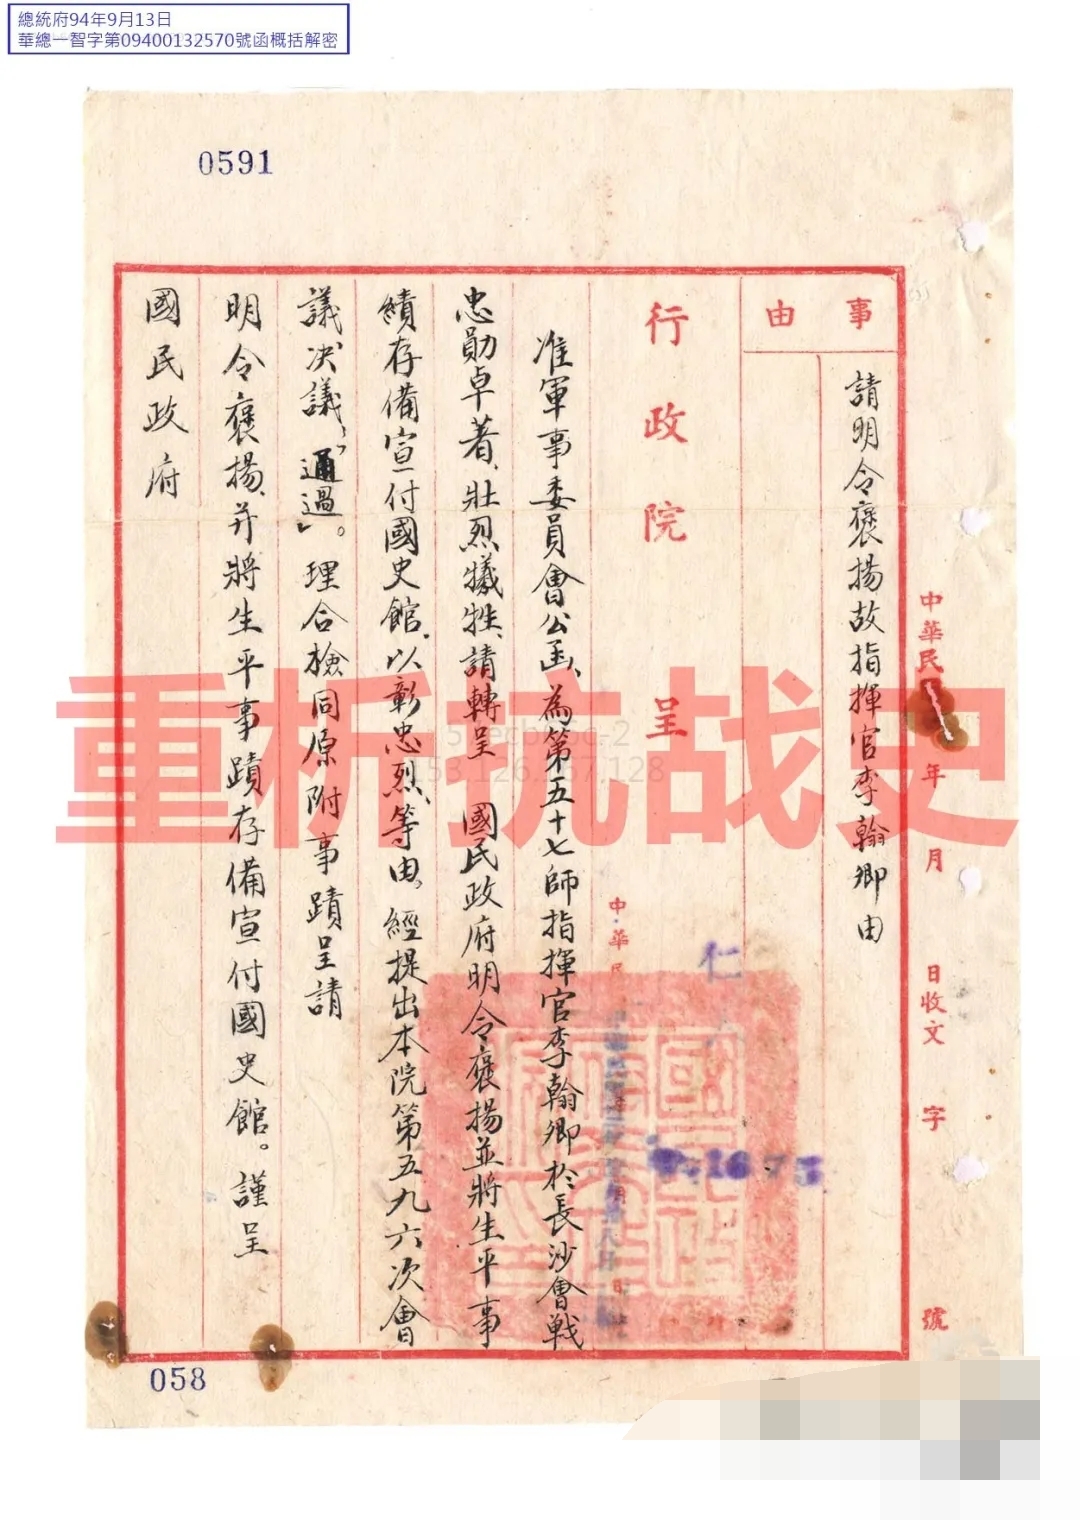 總統府94年9月13日
華總一智字第09400132570號函概括解密
0591
事由
請明令褒揚故指揮官李翰卿由
行政院 呈
准軍事委員會公函、為第五十七師指揮官李翰卿於長沙會戰
忠勛卓著、壯烈犧牲、請轉呈 國民政府明令褒揚並將生平事
績存備宣付國史館、以彰忠烈、等由。經提出本院第五九六次會
議決議、「通過」。理合檢同原附事蹟呈請
明令褒揚、并將生平事蹟存備宣付國史館。謹呈
國民政府
中華民 年 月 日收文 字 號
中華民
仁
重析抗战史
058